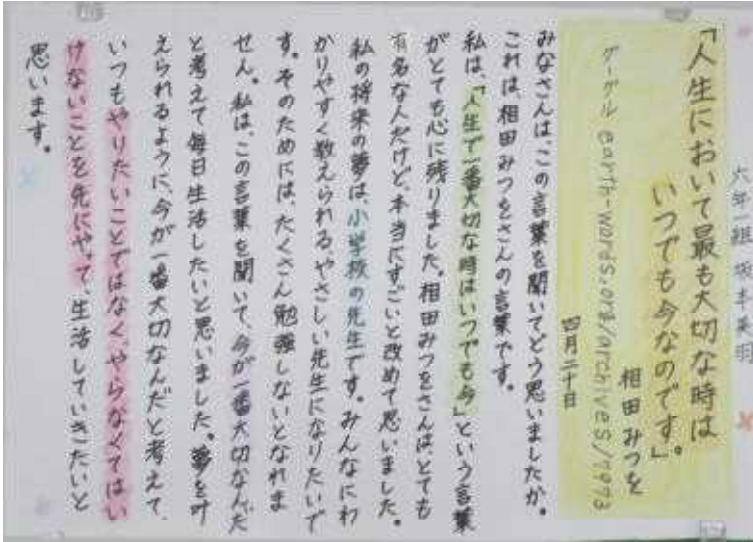 六年一組 坂本
「人生において最も大切な時は
いつでも今なのです」。
相田みつを
グーグル earth-words.org/archives/7973
四月二十日
みなさんは、この言葉を聞いてどう思いましたか。
これは、相田みつをさんの言葉です。
私は、「人生で一番大切な時はいつでも今」という言葉
がとても心に残りました。相田みつをさんはとても
有名な人だけど、本当にすごいと改めて思いました。
私の将来の夢は、小学校の先生です。みんなにわ
かりやすく教えられる、やさしい先生になりたいで
す。そのためには、たくさん勉強しないとなれま
せん。私は、この言葉を聞いて、今が一番大切なんだ
と考えて毎日生活したいと思いました。夢を叶
えられるように、今が一番大切なんだと考えて、
いつもやりたいことではなく、やらなくてはい
けないことを先にやって生活していきたいと
思います。